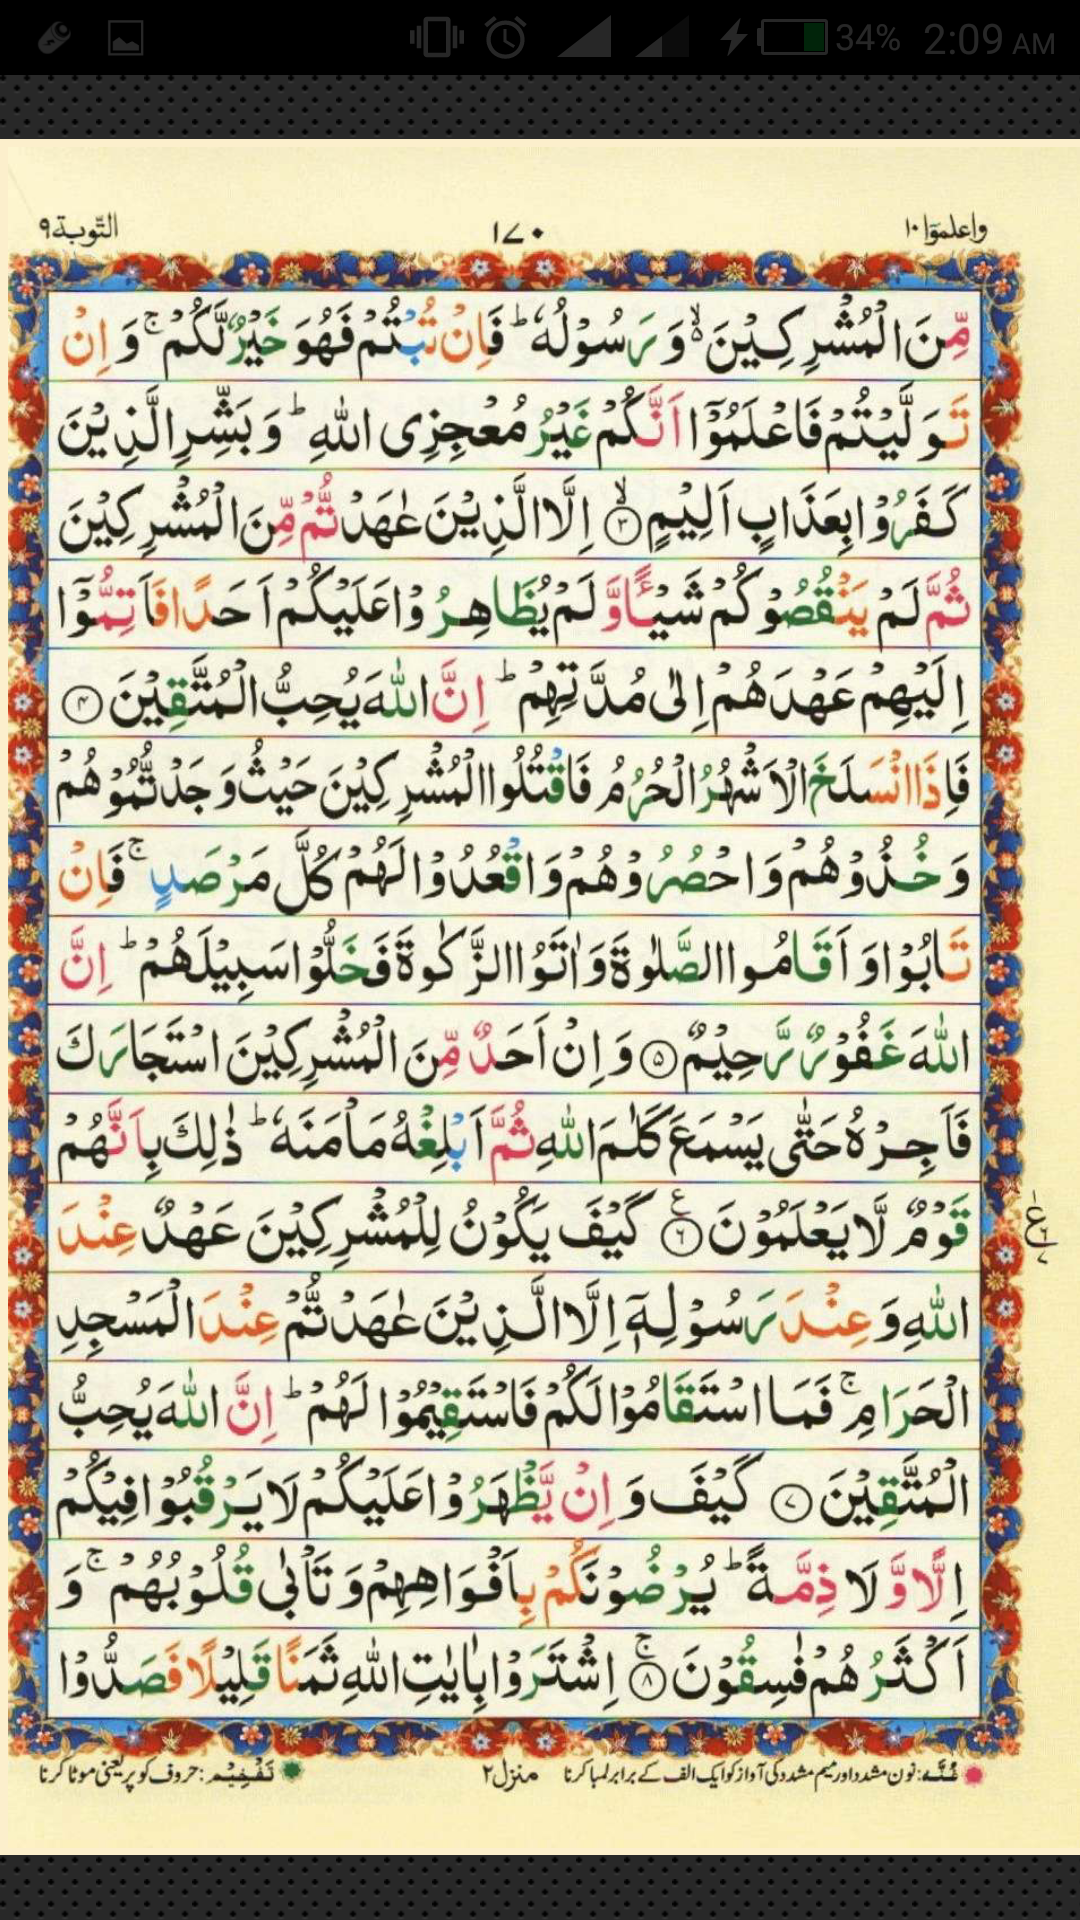 34% 2:09 AM
واعلموا ١٠
١٧٠
التوبة ٩
مِّنَ الْمُشْرِكِيْنَ ۙ۬ وَ رَسُوْلُهٗ ؕ فَاِنْ تُبْتُمْ فَهُوَ خَيْرٌ لَّكُمْ ۚ وَ اِنْ
تَوَلَّيْتُمْ فَاعْلَمُوْۤا اَنَّكُمْ غَيْرُ مُعْجِزِى اللّٰهِ ؕ وَ بَشِّرِ الَّذِيْنَ
كَفَرُوْا بِعَذَابٍ اَلِيْمٍ ۙ﴿٣﴾ اِلَّا الَّذِيْنَ عٰهَدْتُّمْ مِّنَ الْمُشْرِكِيْنَ
ثُمَّ لَمْ يَنْقُصُوْكُمْ شَيْـًٔا وَّ لَمْ يُظَاهِرُوْا عَلَيْكُمْ اَحَدًا فَاَتِمُّوْۤا
اِلَيْهِمْ عَهْدَهُمْ اِلٰى مُدَّتِهِمْ ؕ اِنَّ اللّٰهَ يُحِبُّ الْمُتَّقِيْنَ ﴿٤﴾
فَاِذَا انْسَلَخَ الْاَشْهُرُ الْحُرُمُ فَاقْتُلُوا الْمُشْرِكِيْنَ حَيْثُ وَجَدْتُّمُوْهُمْ
وَ خُذُوْهُمْ وَ احْصُرُوْهُمْ وَ اقْعُدُوْا لَهُمْ كُلَّ مَرْصَدٍ ۚ فَاِنْ
تَابُوْا وَ اَقَامُوا الصَّلٰوةَ وَ اٰتَوُا الزَّكٰوةَ فَخَلُّوْا سَبِيْلَهُمْ ؕ اِنَّ
اللّٰهَ غَفُوْرٌ رَّحِيْمٌ ﴿٥﴾ وَ اِنْ اَحَدٌ مِّنَ الْمُشْرِكِيْنَ اسْتَجَارَكَ
فَاَجِرْهُ حَتّٰى يَسْمَعَ كَلٰمَ اللّٰهِ ثُمَّ اَبْلِغْهُ مَاْمَنَهٗ ؕ ذٰلِكَ بِاَنَّهُمْ
قَوْمٌ لَّا يَعْلَمُوْنَ ﴿٦﴾ۧ كَيْفَ يَكُوْنُ لِلْمُشْرِكِيْنَ عَهْدٌ عِنْدَ
اللّٰهِ وَ عِنْدَ رَسُوْلِهٖۤ اِلَّا الَّذِيْنَ عٰهَدْتُّمْ عِنْدَ الْمَسْجِدِ
الْحَرَامِ ۚ فَمَا اسْتَقَامُوْا لَكُمْ فَاسْتَقِيْمُوْا لَهُمْ ؕ اِنَّ اللّٰهَ يُحِبُّ
الْمُتَّقِيْنَ ﴿٧﴾ كَيْفَ وَ اِنْ يَّظْهَرُوْا عَلَيْكُمْ لَا يَرْقُبُوْا فِيْكُمْ
اِلًّا وَّ لَا ذِمَّةً ؕ يُرْضُوْنَكُمْ بِاَفْوَاهِهِمْ وَ تَاْبٰى قُلُوْبُهُمْ ۚ وَ
اَكْثَرُهُمْ فٰسِقُوْنَ ۚ﴿٨﴾ اِشْتَرَوْا بِاٰيٰتِ اللّٰهِ ثَمَنًا قَلِيْلًا فَصَدُّوْا
غُنَّه: نون مشدد اور میم مشدد کی آواز کو ایک الف کے برابر لمبا کرنا
منزل ٢
تَفْخِيْم: حروف کو پُر یعنی موٹا کرنا